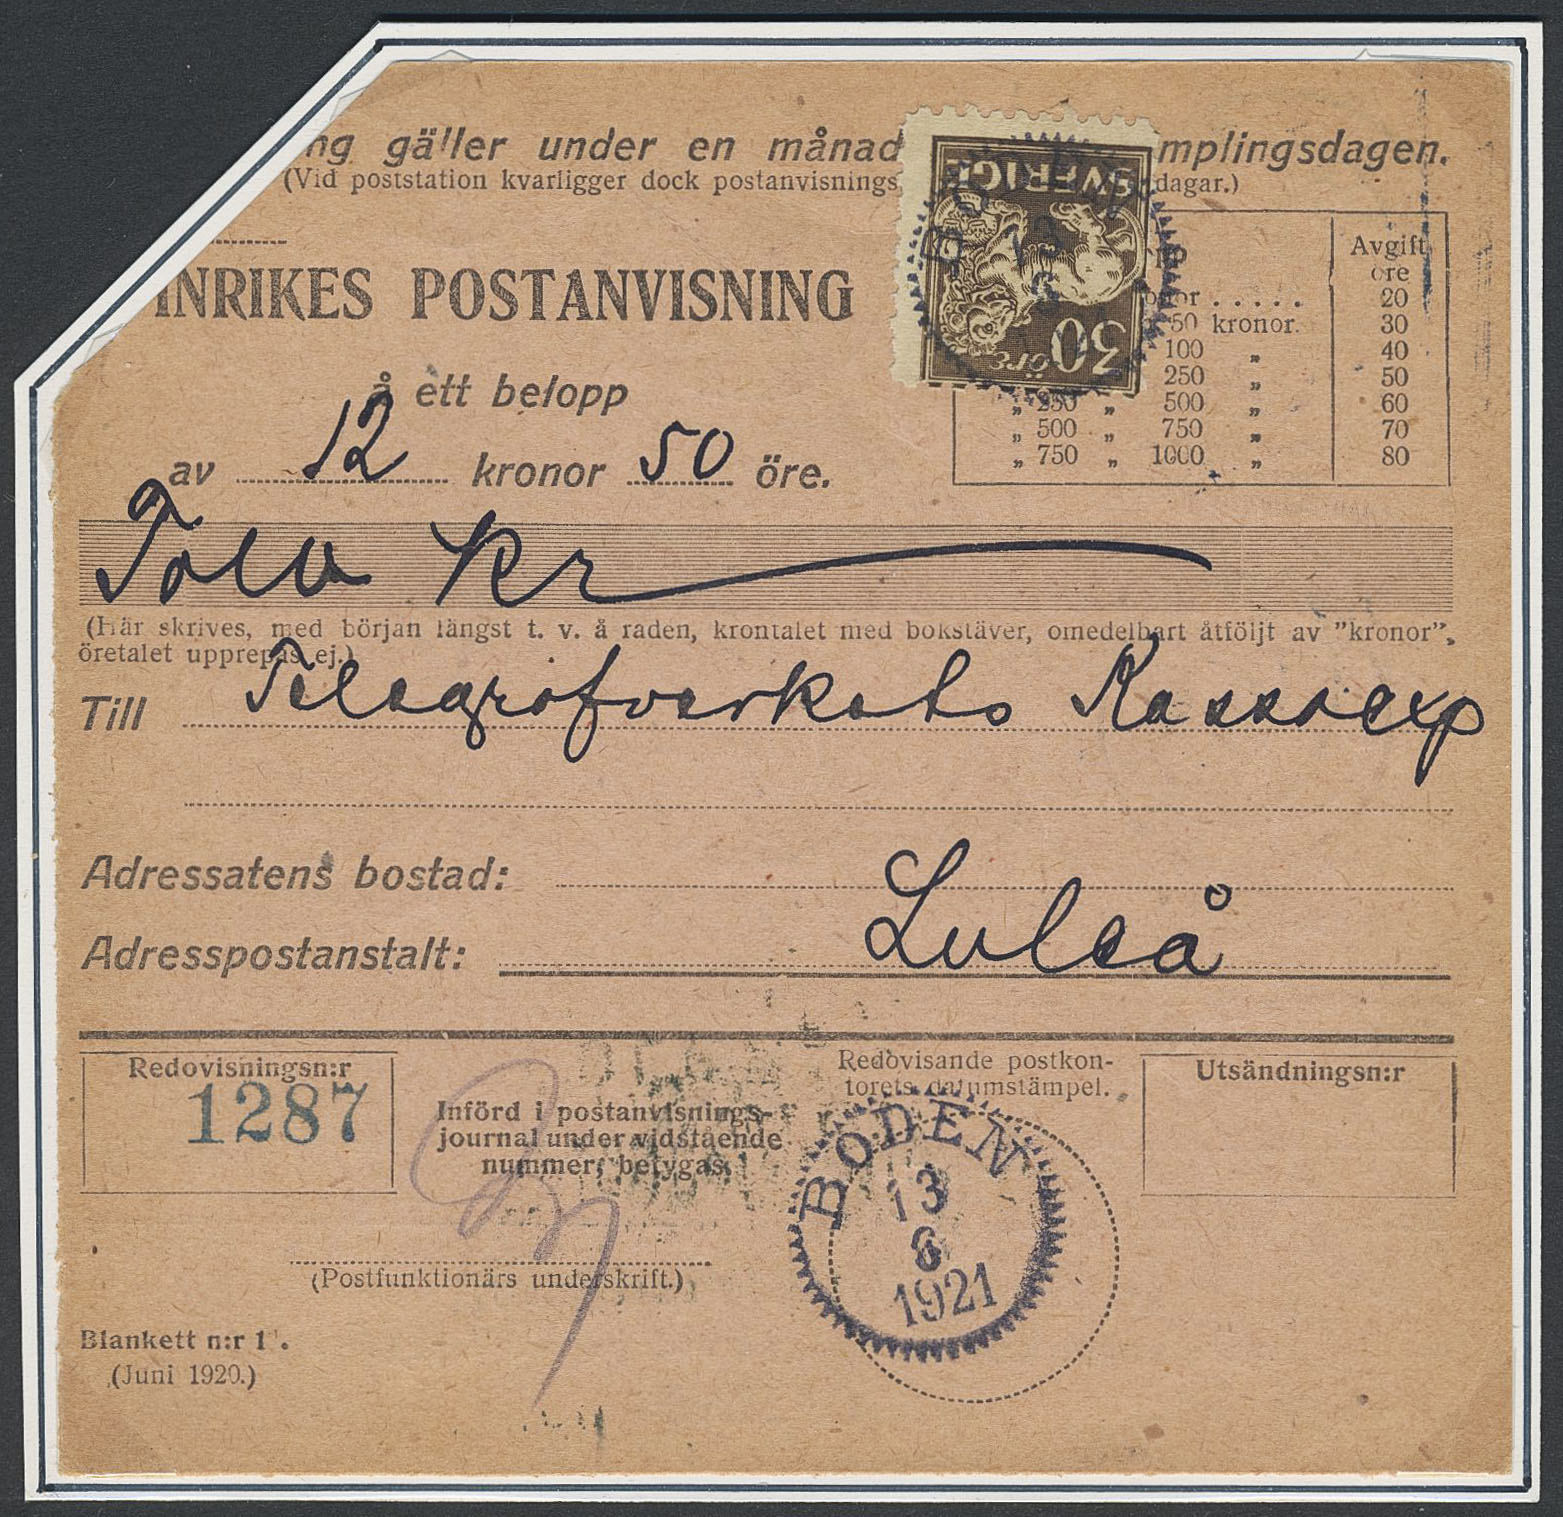 ng gäller under en månad mplingsdagen.
(Vid poststation kvarligger dock postanvisnings dagar.)
INRIKES POSTANVISNING
å ett belopp
av 12 kronor 50 öre.
SVERIGE
30 ÖRE
BODEN
13
Avgift
öre
20
50 kronor. 30
100 „ 40
250 „ 50
„ 250 „ 500 „ 60
„ 500 „ 750 „ 70
„ 750 „ 1000 „ 80
Tolv Kr
(Här skrives, med början längst t. v. å raden, krontalet med bokstäver, omedelbart åtföljt av ”kronor”,
öretalet upprepas ej.)
Till Telegrafverkets Kassaexp
Adressatens bostad:
Adresspostanstalt: Luleå
Redovisningsn:r
1287
Införd i postanvisnings-
journal under vidstående
nummer, betygas.
(Postfunktionärs underskrift.)
Redovisande postkon-
torets datumstämpel.
BODEN
13
8
1921
Utsändningsn:r
Blankett n:r 1
(Juni 1920.)